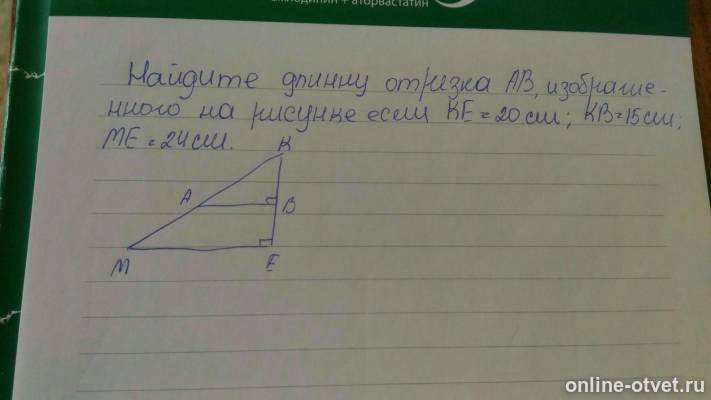 амлодипин + аторвастатин
Найдите длинну отрезка АВ, изображе-
нного на рисунке если КЕ = 20 см; КВ = 15 см;
МЕ = 24 см.
К
А
В
М
Е
online-otvet.ru